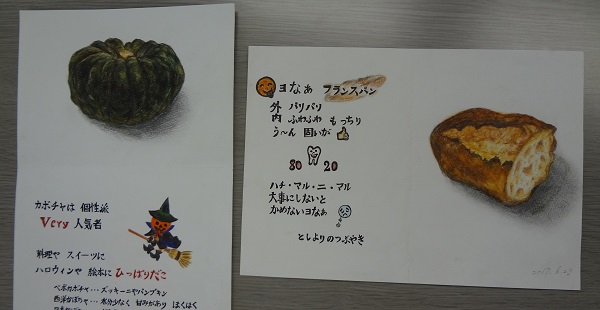 カボチャは 個性派
Very 人気者
料理や スイーツに
ハロウィンや 絵本に ひっぱりだこ
ペポカボチャ…ズッキーニやパンプキン
西洋かぼちゃ…水分少なく 甘みがあり ほくほく
ヨなぁ フランスパン
外 パリパリ
内 ふわふわ もっちり
う〜ん 固いが
80 20
ハチ・マル・ニ・マル
大事にしないと
かめないヨなぁ
としよりのつぶやき